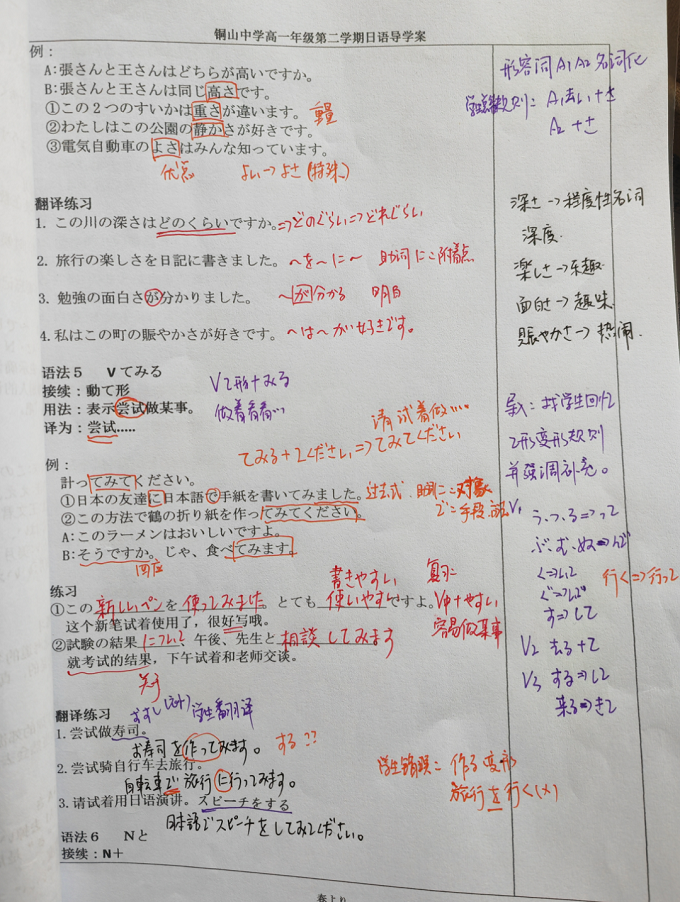 铜山中学高一年级第二学期日语导学案
例：
A:張さんと王さんはどちらが高いですか。
B:張さんと王さんは同じ高さです。
①この２つのすいかは重さが違います。 重量
②わたしはこの公園の静かさが好きです。
③電気自動車のよさはみんな知っています。
优点 よい→よさ(特殊)
形容词A1A2名词化
规则：A1去い+さ
A2+さ
翻译练习
1. この川の深さはどのくらいですか。⇒どのぐらい⇒どれぐらい
2. 旅行の楽しさを日記に書きました。 ～を～に～ 助词に：附着点
3. 勉強の面白さが分かりました。 ～が分かる 明白
4.私はこの町の賑やかさが好きです。 ～は～が好きです。
深さ→程度性名词
深度.
楽しさ→乐趣
面白さ→趣味
賑やかさ→热闹
语法５ Ｖてみる
接续：動て形 Vて形+みる
用法：表示尝试做某事。 做着看看…
译为：尝试.....
请试着做….
てみる+てください⇒てみてください
导入：找学生回忆
て形变形规则
并强调补充。
例：
計ってみてください。
①日本の友達に日本語で手紙を書いてみました。过去式 助词に：对象
で：手段
②この方法で鶴の折り紙を作ってみてください。
A:このラーメンはおいしいですよ。
B:そうですか。じゃ、食べてみます。
回应
V1
う.つ.る⇒って
ぶ.む.ぬ⇒んで
く⇒いて 行く⇒行って
ぐ⇒いで
す⇒して
V2 去る+て
V3 する⇒して
来る⇒きて
练习
書きやすい 复习：
①この新しいペンを使ってみました。とても使いやすいですよ。V中+やすい
这个新笔试着使用了，很好写哦。 容易做某事
②試験の結果について、午後、先生と相談してみます
就考试的结果，下午试着和老师交谈。
关于
翻译练习 おすし 学生翻译
1.尝试做寿司。
お寿司を作ってみます。 する??
2.尝试骑自行车去旅行。
自転車で旅行に行ってみます。
学生错误：作る变形
旅行を行く(×)
3.请试着用日语演讲。スピーチをする
日本語でスピーチをしてみてください。
语法６ Ｎと
接续：N＋